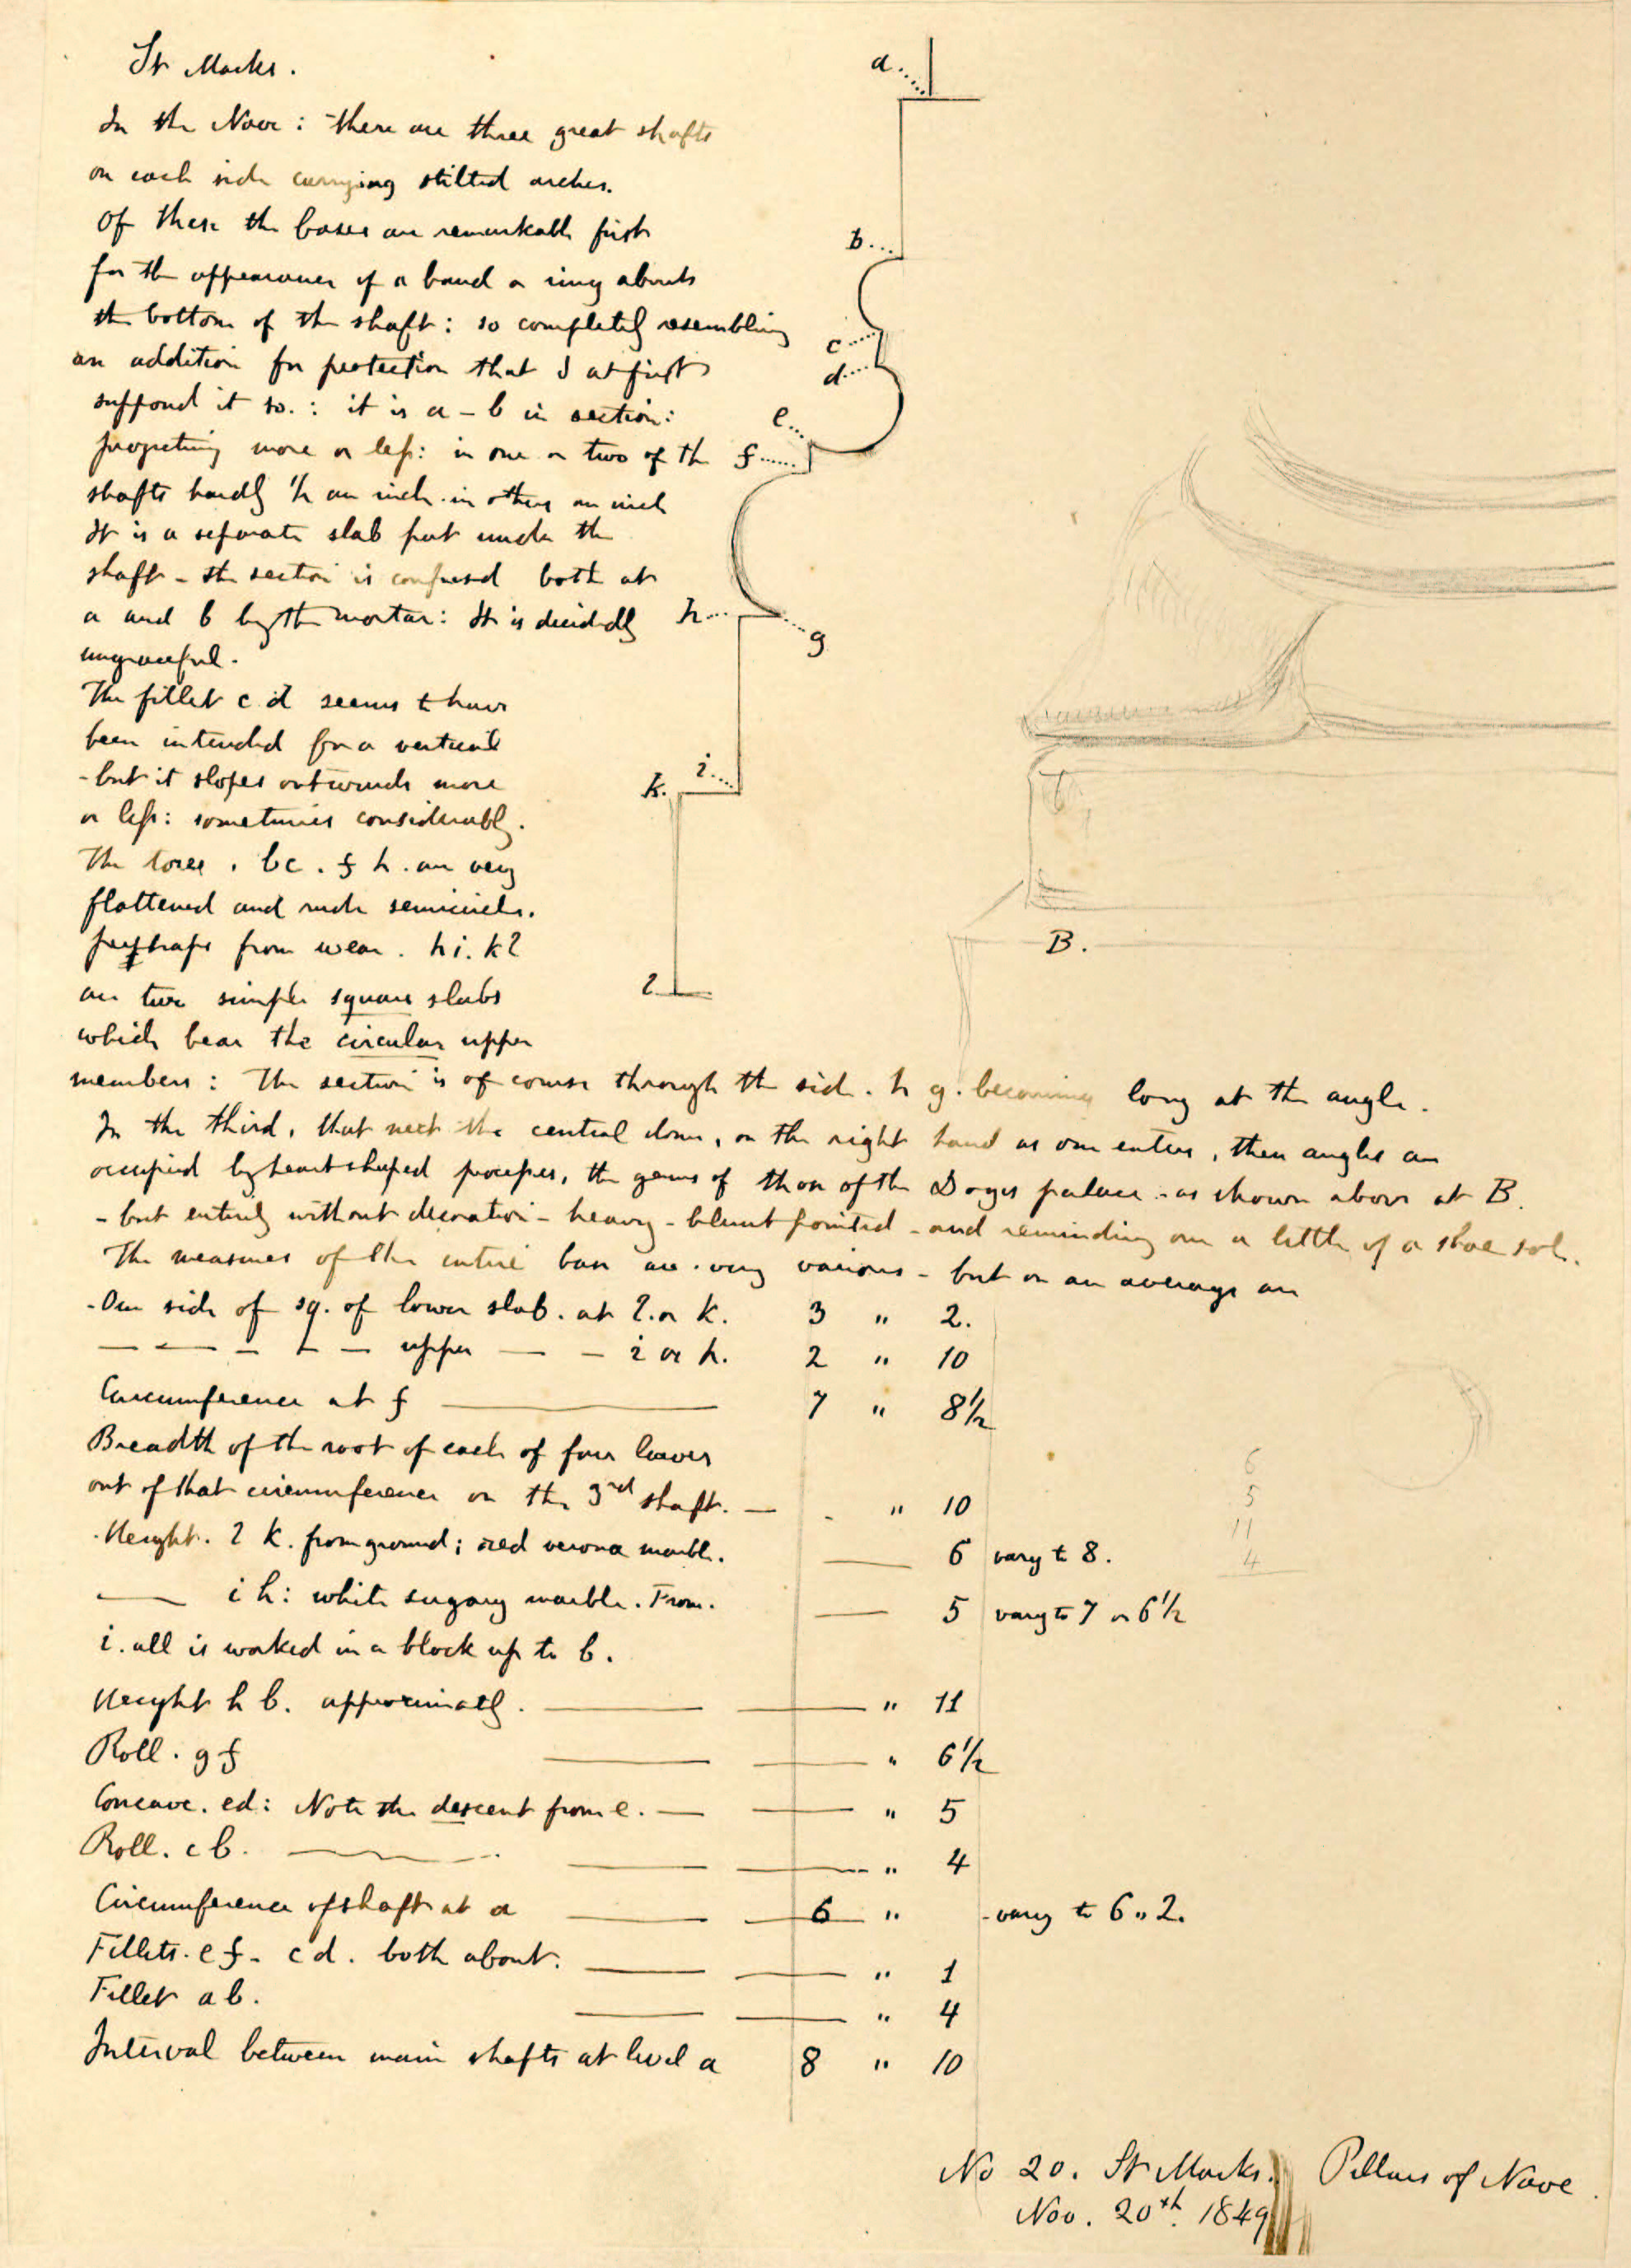 St Marks.
In the Nave: there are three great shafts
on each side carrying stilted arches.
Of these the bases are remarkable first
for the appearance of a band or ring about
the bottom of the shaft: so completely resembling
an addition for protection that I at first
supposed it so.: it is a - b in section:
projecting more or less: in one or two of the
shafts hardly 1/2 an inch. in others an inch
It is a separate slab put under the
shaft - the section is confused both at
a and b by the mortar: It is decidedly
ungraceful.
The fillet c d seems to have
been intended for a vertical
- but it slopes outwards more
or less: sometimes considerably.
The tores, bc. f h. are very
flattened and rude semicircles.
perhaps from wear. h i. k l
are two simple square slabs
which bear the circular upper
members: The section is of course through the side. h g. becoming long at the angle.
In the third, that next the central dome, on the right hand as one enters, then angles are
occupied by heart shaped processes, the germs of those of the Doges palace - as shown above at B.
- but entirely without decoration - heavy - blunt pointed - and reminding one a little of a shoe sole.
The measures of the entire base are very various - but on an average are
- One side of sq. of lower slab. at l. or k. 3 " 2.
— — — — — upper — — i or h. 2 " 10
Circumference at f 7 " 8 1/2
Breadth of the root of each of four leaves
out of that circumference on the 3rd shaft. — " 10
Height. l k. from ground; red verona marble. — 6 vary to 8.
— i h: white sugary marble. From. — 5 vary to 7 or 6 1/2
i. all is worked in a block up to b.
Height h b. approximatly. " 11
Roll. g f " 6 1/2
Concave. ed: Note the descent from e. — " 5
Roll. c b. " 4
Circumference of shaft at a 6 " - vary to 6 " 2.
Fillets. e f - c d. both about. " 1
Fillet a b. " 4
Interval between main shafts at level a 8 " 10
a
b
c
d
e
f
h
g
i
k.
l
B.
6
5
11
4
No 20. St Marks. Pillars of Nave.
Nov. 20th. 1849